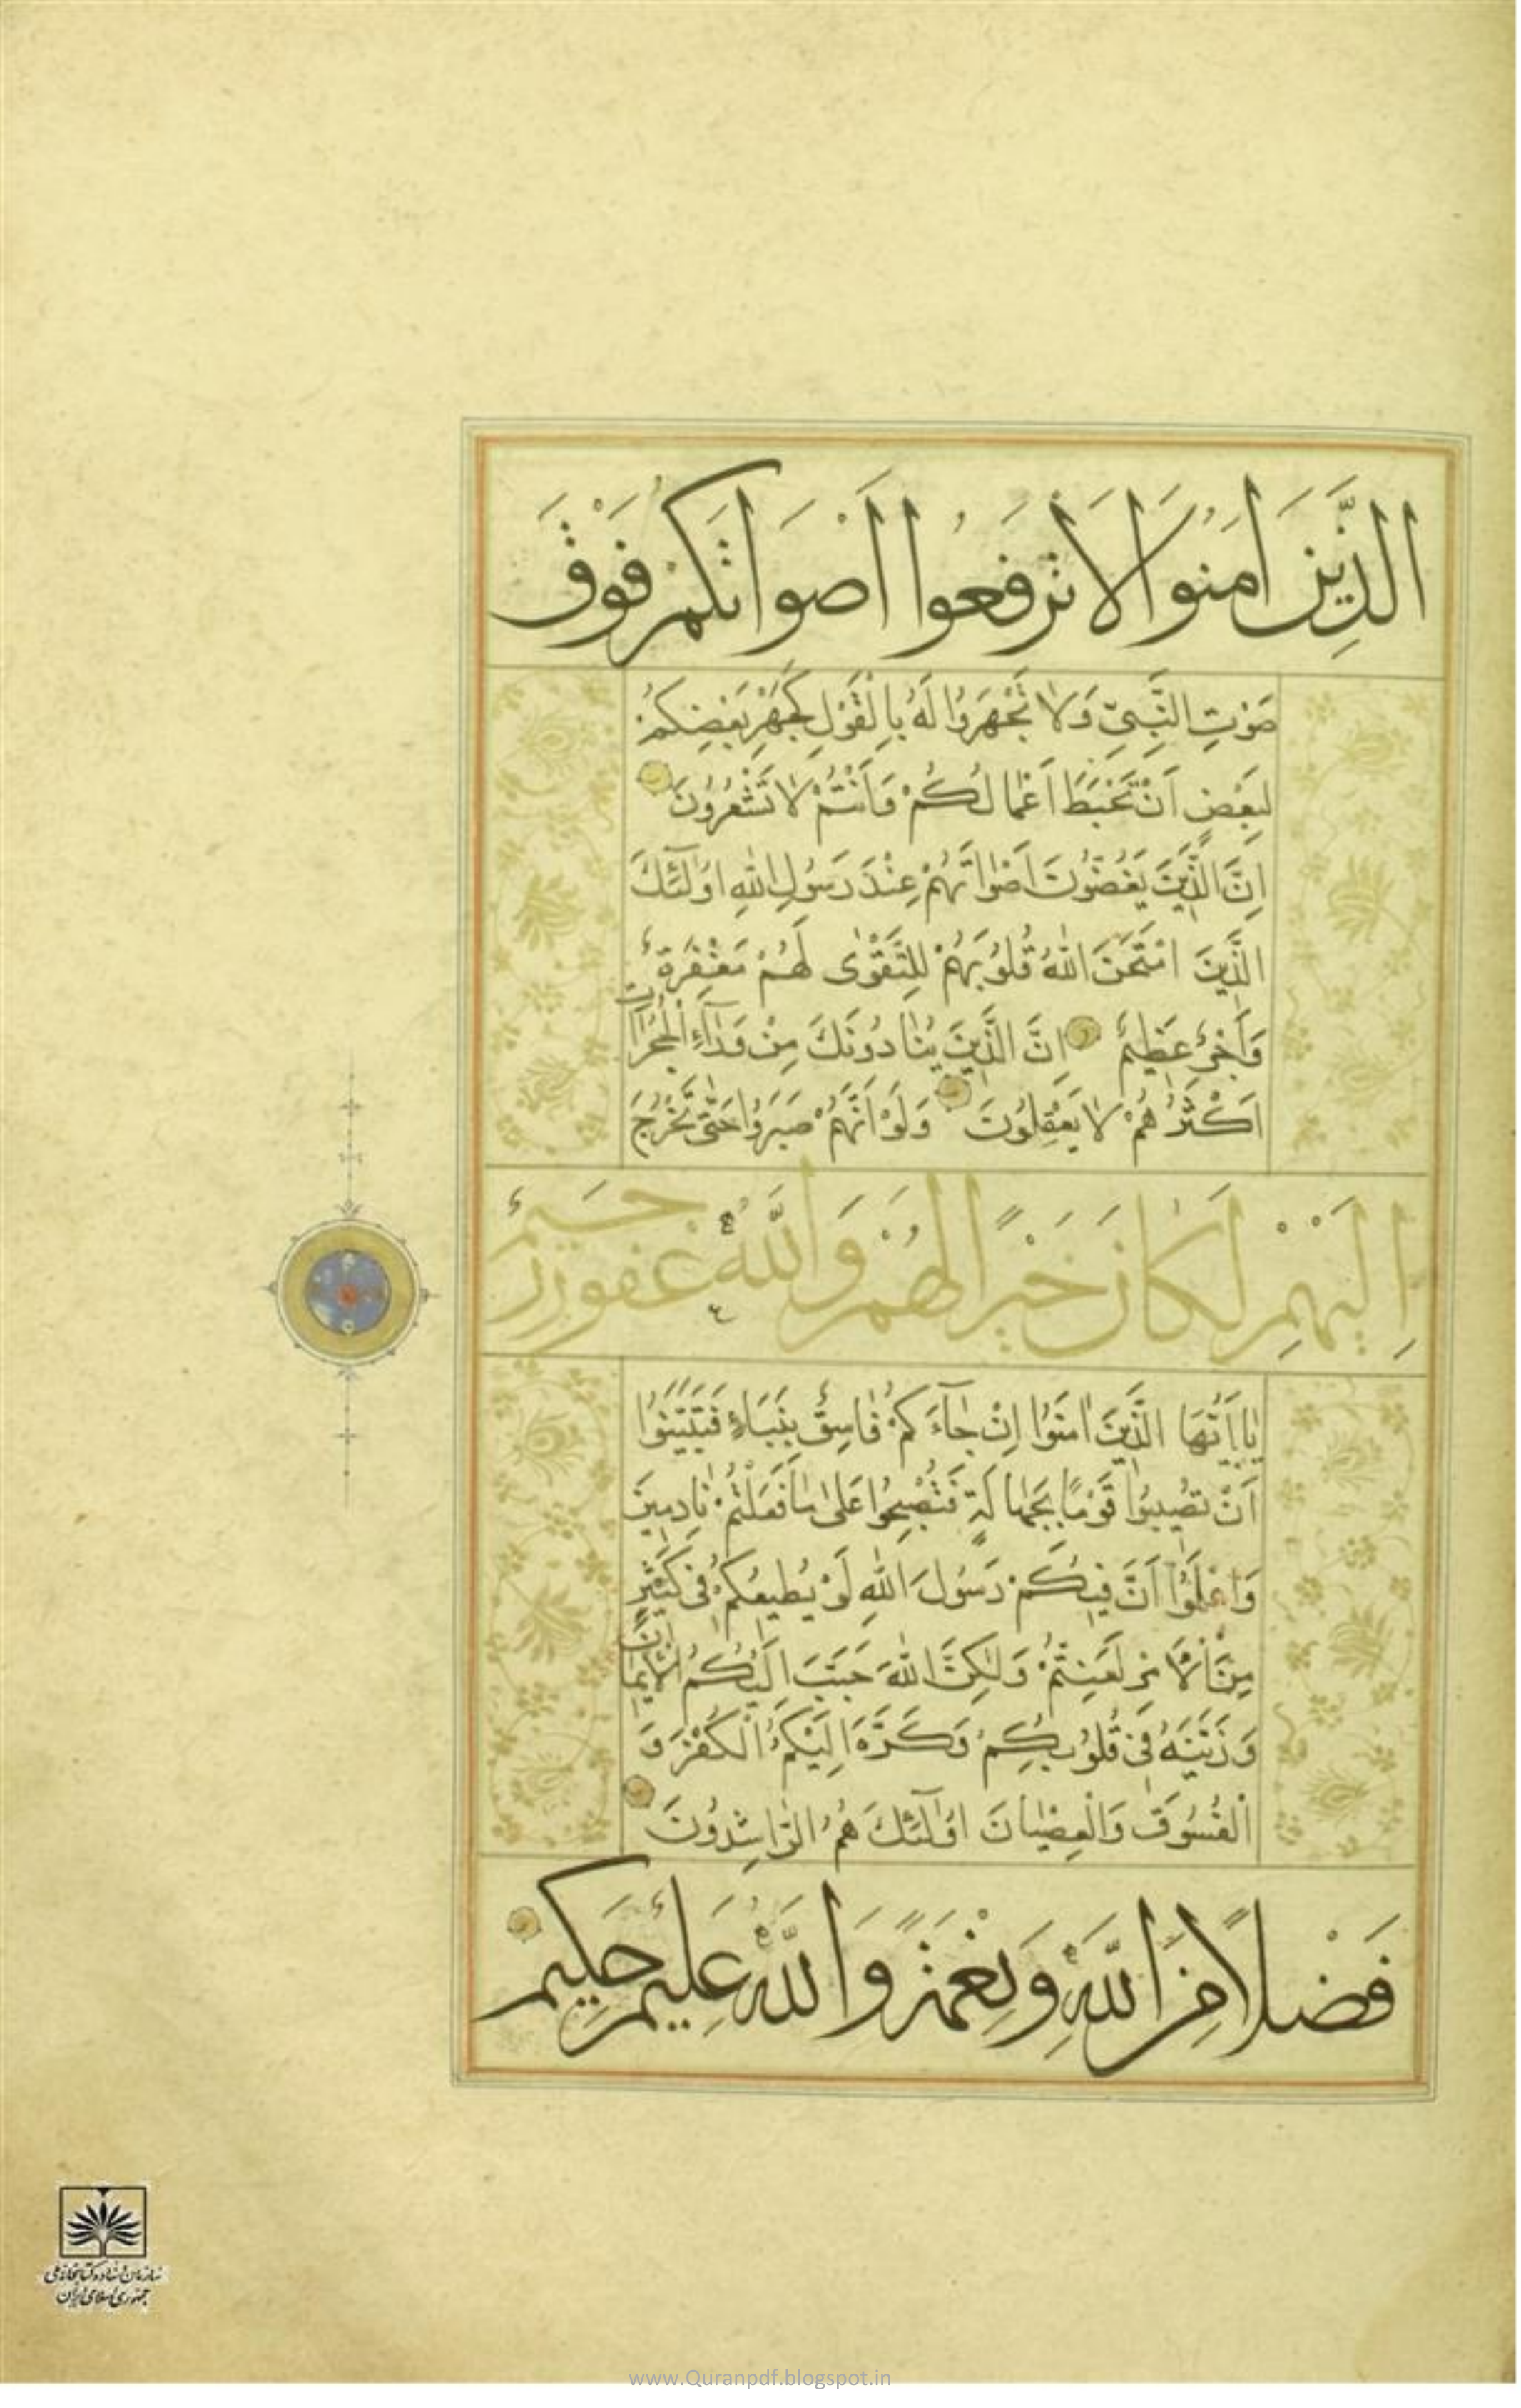 الَّذِينَ آمَنُوا لَا تَرْفَعُوا أَصْوَاتَكُمْ فَوْقَ
صَوْتِ النَّبِيِّ وَلَا تَجْهَرُوا لَهُ بِالْقَوْلِ كَجَهْرِ بَعْضِكُمْ
لِبَعْضٍ اَنْ تَحْبَطَ اَعْمَالُكُمْ وَاَنْتُمْ لَا تَشْعُرُونَ
اِنَّ الَّذِينَ يَغُضُّونَ اَصْوَاتَهُمْ عِنْدَ رَسُولِ اللهِ اُولٰٓئِكَ
الَّذِينَ امْتَحَنَ اللهُ قُلُوبَهُمْ لِلتَّقْوٰى لَهُمْ مَغْفِرَةٌ
وَاَجْرٌ عَظِيمٌ اِنَّ الَّذِينَ يُنَادُونَكَ مِنْ وَرَآءِ الْحُجُرَاتِ
اَكْثَرُهُمْ لَا يَعْقِلُونَ وَلَوْ اَنَّهُمْ صَبَرُوا حَتّٰى تَخْرُجَ
اِلَيْهِمْ لَكَانَ خَيْرًا لَهُمْ وَاللهُ غَفُورٌ رَحِيمٌ
يَا اَيُّهَا الَّذِينَ اٰمَنُوا اِنْ جَآءَكُمْ فَاسِقٌ بِنَبَاءٍ فَتَبَيَّنُوا
اَنْ تُصِيبُوا قَوْمًا بِجَهَالَةٍ فَتُصْبِحُوا عَلٰى مَا فَعَلْتُمْ نَادِمِينَ
وَاعْلَمُوٓا اَنَّ فِيكُمْ رَسُولَ اللهِ لَوْ يُطِيعُكُمْ فِى كَثِيرٍ
مِنَ الْاَمْرِ لَعَنِتُّمْ وَلٰكِنَّ اللهَ حَبَّبَ اِلَيْكُمُ الْاِيمَانَ
وَزَيَّنَهُ فِى قُلُوبِكُمْ وَكَرَّهَ اِلَيْكُمُ الْكُفْرَ وَ
الْفُسُوقَ وَالْعِصْيَانَ اُولٰٓئِكَ هُمُ الرَّاشِدُونَ
فَضْلًا مِنَ اللهِ وَنِعْمَةً وَاللهُ عَلِيمٌ حَكِيمٌ
سازمان اسناد و کتابخانه ملی
جمهوری اسلامی ایران
www.Quranpdf.blogspot.in